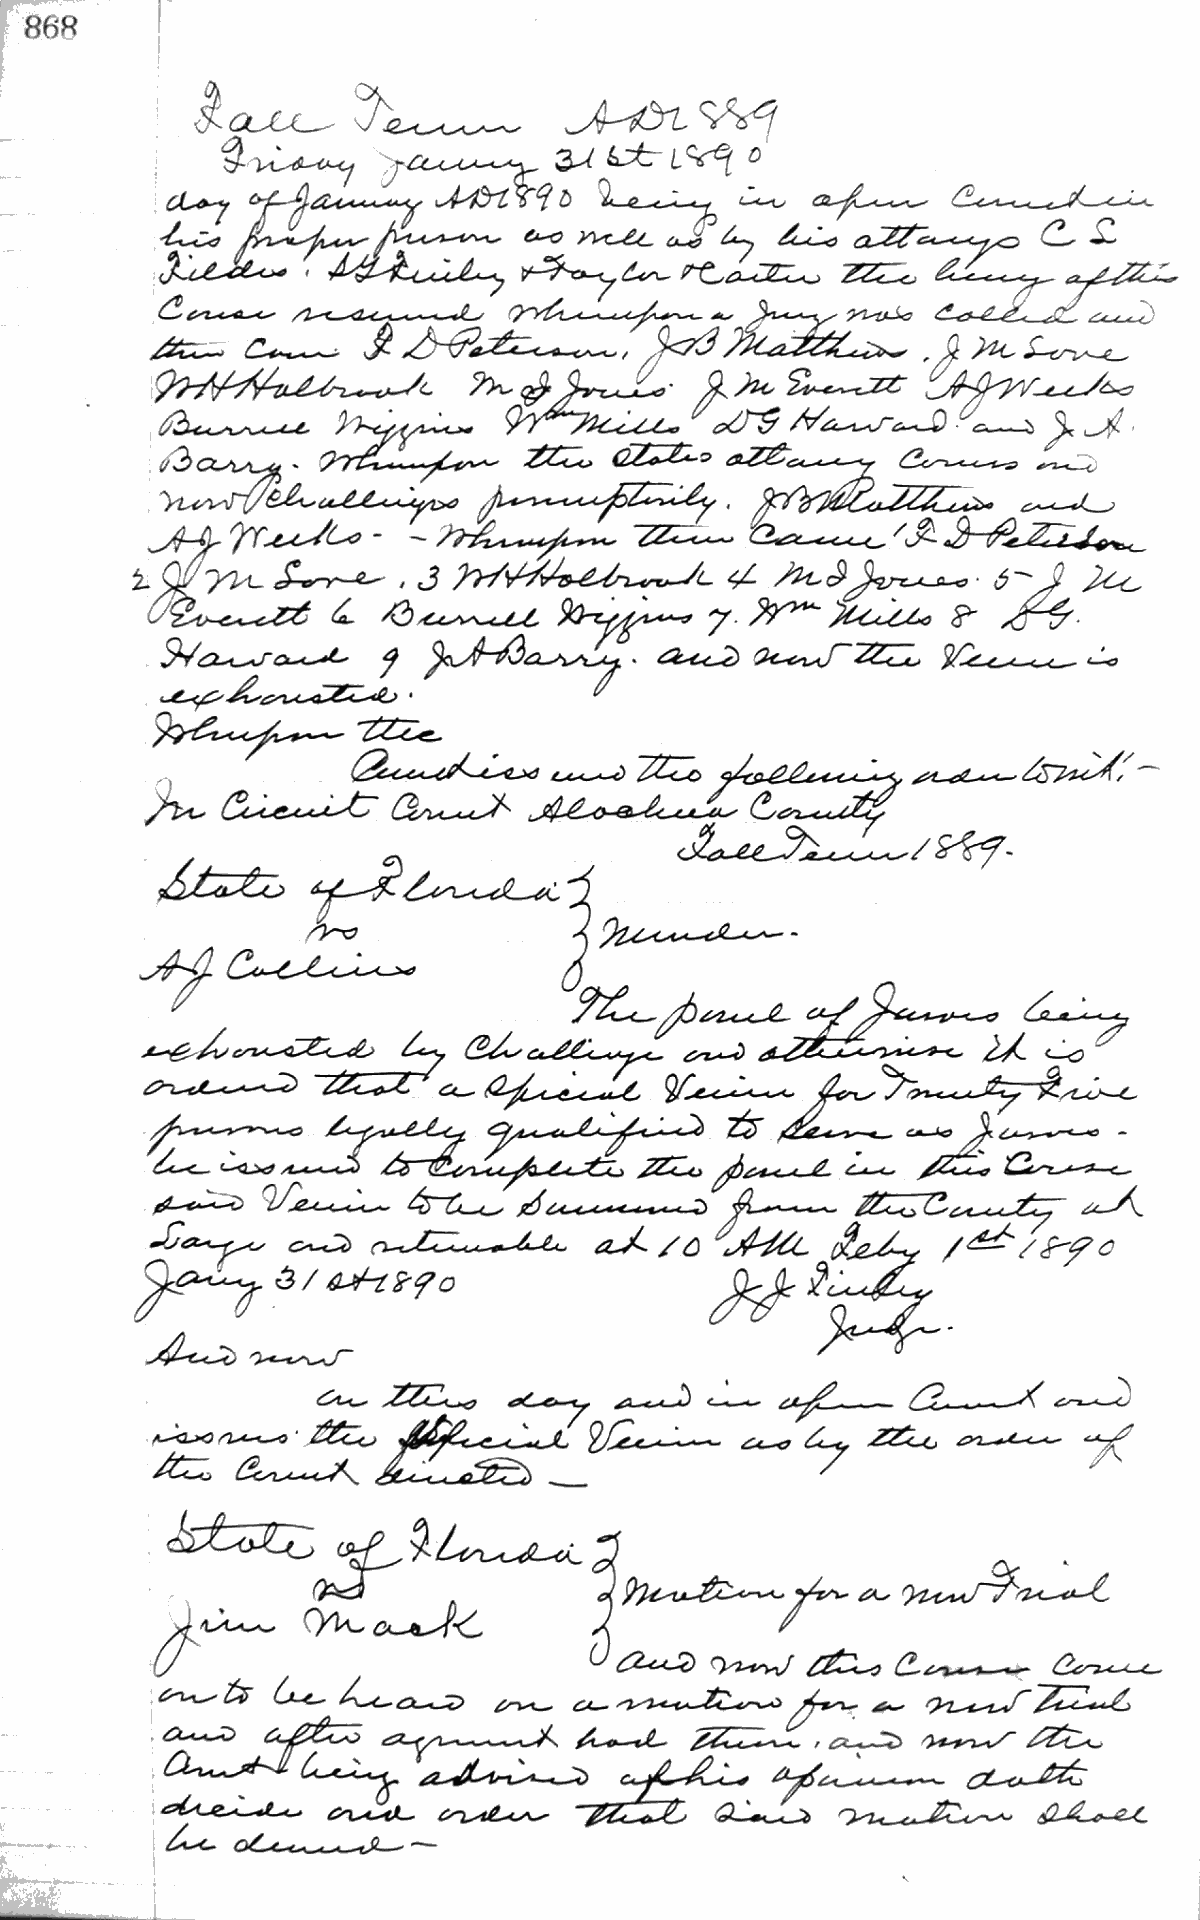 868
Fall Term AD 1889
Friday January 31st 1890
day of January AD 1890 being in open Court in
his proper person as well as by his attorneys C L
Fildes. & Taylor & Carter the hearing of this
Cause resumed Whereupon a Jury was called and
then Come F D Peterson, J B Matthews. J M Love
W H Holbrook M I Jones J M Everett A J Weeks
Burrell Wiggins Wm Mills D G Haward and J A.
Barry. Whereupon the States attorney Comes and
now Challenges peremptorily. J B Matthews and
A J Weeks - - Whereupon then Came 1 F D Peterson
2 J M Love. 3 W H Holbrook 4 M I Jones. 5 J M
Everett 6 Burrell Wiggins 7. Wm Mills 8 D G.
Haward 9 J A Barry. and now the Venire is
exhausted.
Whereupon the
Court issued the following order towit: -
In Circuit Court Alachua County
Fall Term 1889.
State of Florida
vs
Murder.
A J Collins
The panel of Jurors being
exhausted by Challenge and otherwise it is
ordered that a special Venire for Twenty Five
persons legally qualified to serve as Jurors -
be issued to Complete the panel in this Cause
said Venire to be Summoned from the County at
Large and returnable at 10 AM Feby 1st 1890
Jany 31st 1890 J J Finley
Judge.
And now
on this day and in open Court and
issues the Special Venire as by the order of
the Court directed —
State of Florida
vs
Motion for a new Trial
Jim Mack
and now this Cause Come
on to be heard on a motion for a new trial
and after agrument had them. and now the
Court being advised of his opinion doth
decide and order that said motion shall
be denied —